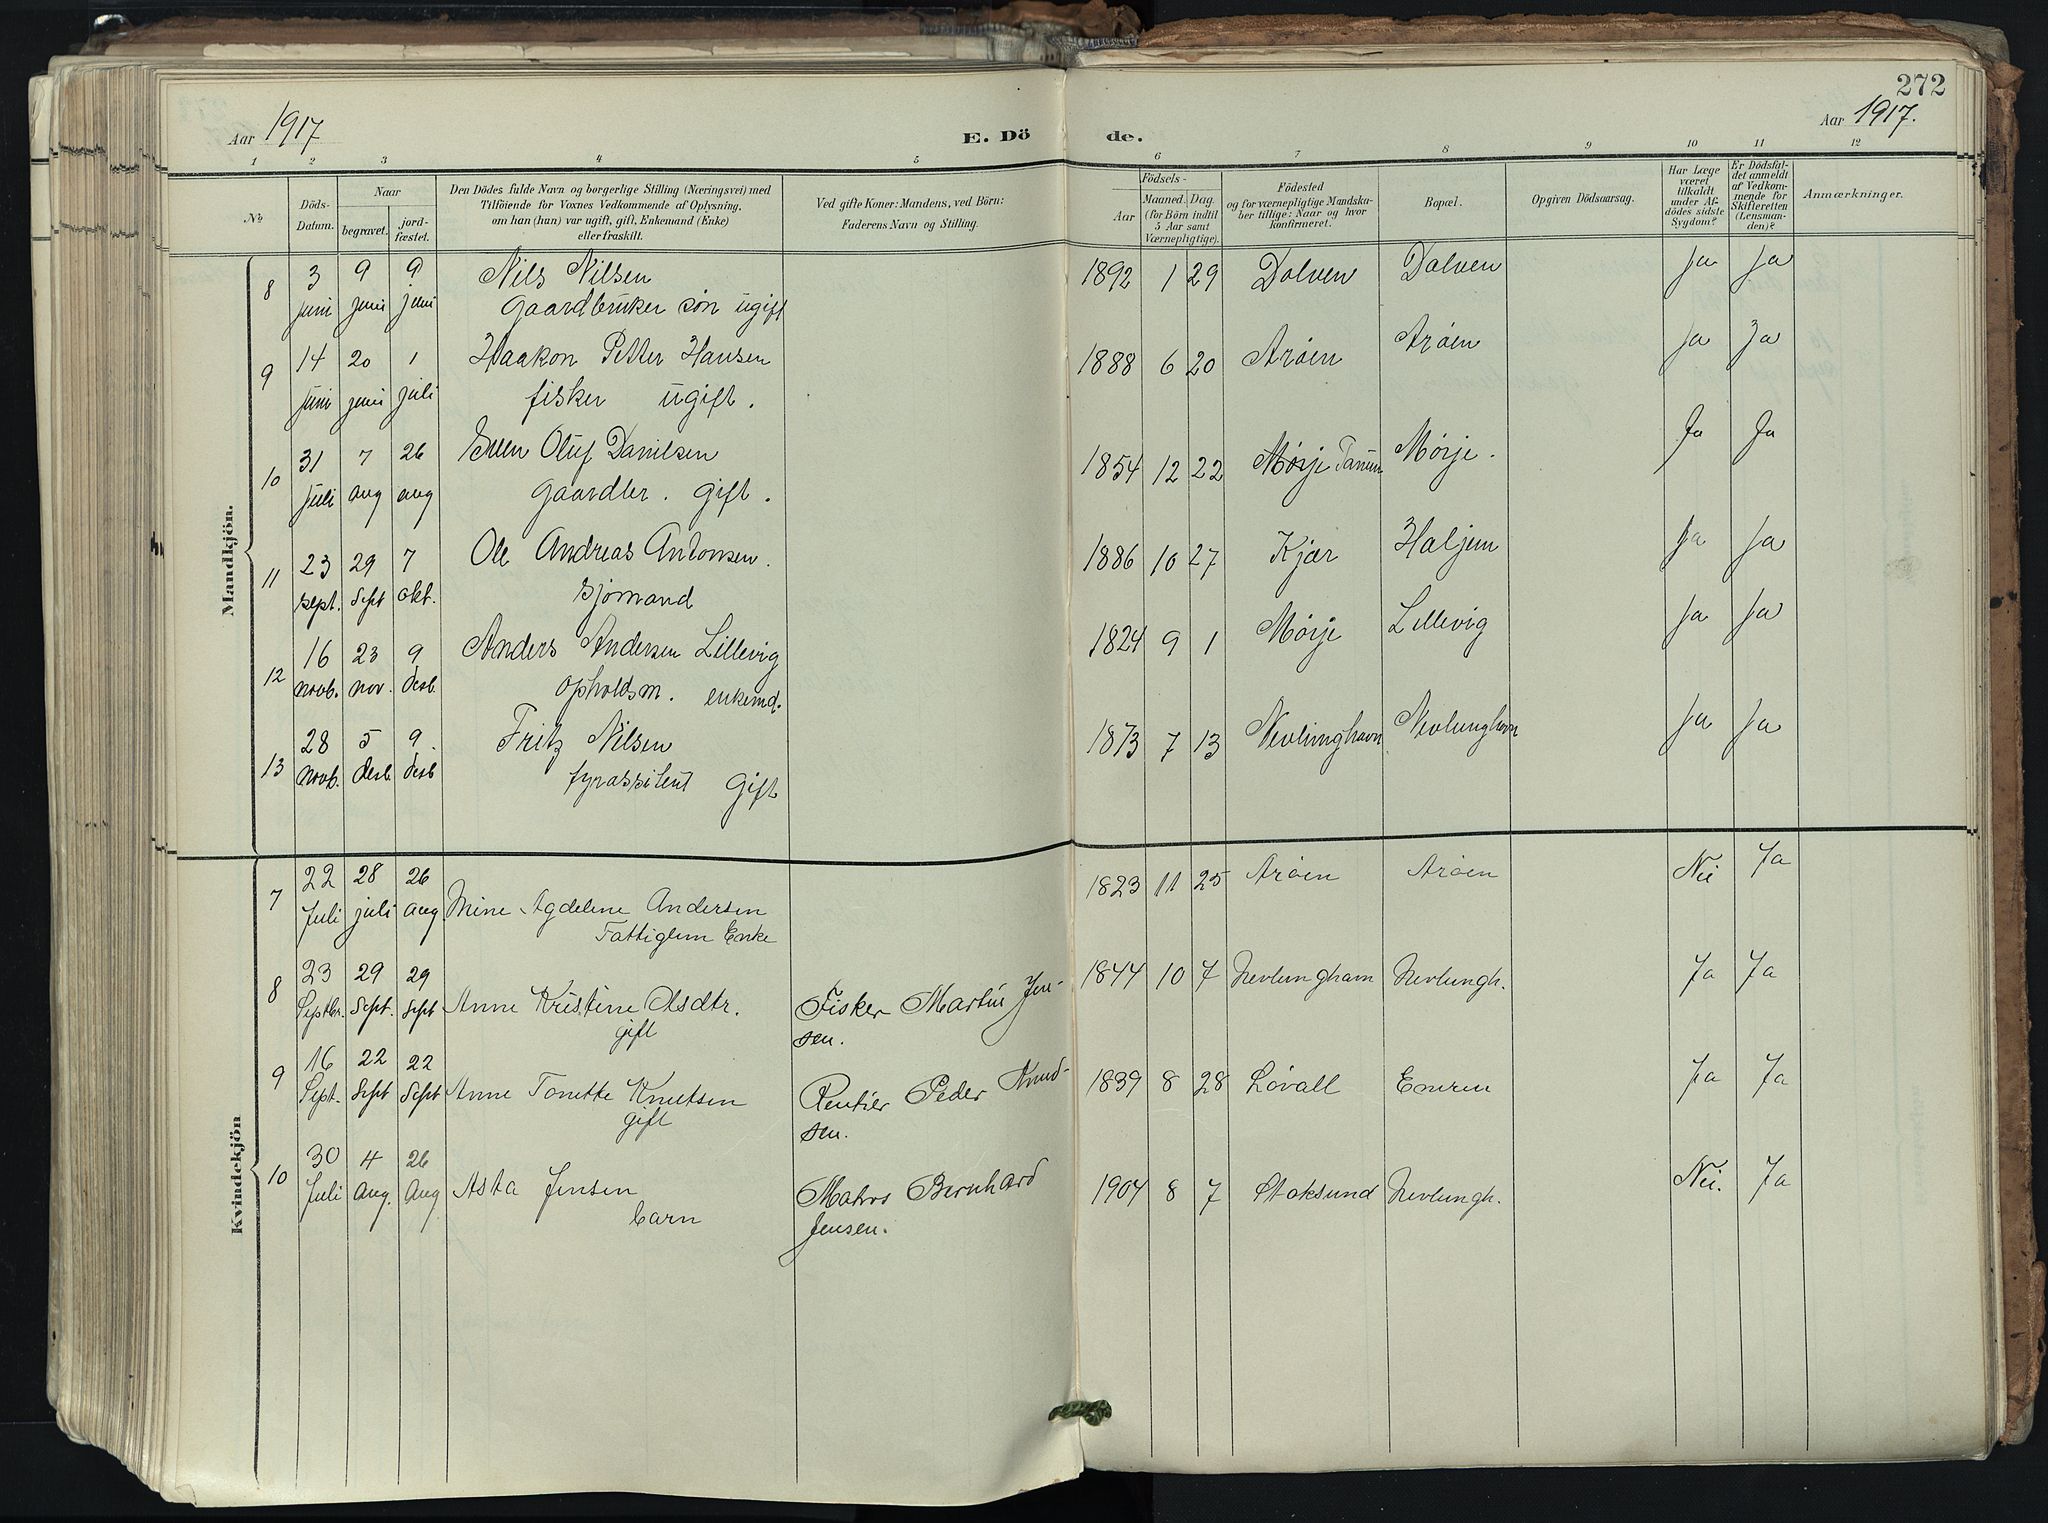 272
Aar 1917
E. Dö
de.
Aar 1917.
1 2 3 4 5 6 7 8 9 10 11 12
No
Döds-
Datum.
Naar
begravet.
jord-
fæstet.
Den Dödes fulde Navn og borgerlige Stilling (Næringsvei) med
Tilföiende for Voxnes Vedkommende af Oplysning,
om han (hun) var ugift, gift, Enkemand (Enke)
eller fraskilt.
Ved gifte Koner: Mandens, ved Börn:
Faderens Navn og Stilling.
Födsels-
Aar
Maaned. Dag.
(for Börn indtil
5 Aar samt
Værnepligtige).
Födested
og for værnepligtige Mandska-
ber tillige: Naar og hvor
konfirmeret.
Bopæl.
Opgiven Dödsaarsag.
Har Læge
været
tilkaldt
under Af-
dödes sidste
Sygdom?
Er Dödsfal-
det anmeldt
af Vedkom-
mende for
Skifteretten
(Lensman-
den)?
Anmærkninger.
Mandkjön.
8 3 juni 9 juni 9 juni Nils Nilsen 1892 1 29 Dolven Dolven Ja Ja
Gaardbruker søn ugift
9 14 juni 20 juni 1 juli Haakon Petter Hansen 1888 6 20 Arøen Arøen Ja Ja
fisker ugift.
10 31 juli 7 aug 26 aug Even Oluf Danielsen 1854 12 22 Mørje Tanum Mørje. Ja Ja
Gaardbr. gift.
11 23 sept. 29 sept 7 okt. Ole Andreas Antonsen. 1886 10 27 Kjær Haljem Ja Ja
sjømand
12 16 novb. 23 nov. 9 desb. Anders Andersen Lillevig 1824 9 1 Mørje Lillevig Ja Ja
opholdsm. enkemd.
13 28 novb. 5 desb. 9. desb Fritz Nilsen 1873 7 13 Nevlunghavn Nevlunghavn Ja Ja
fyrassistent Gift
Kvindekjön
7 22 Juli 28 juli 26 aug. Mine Agdelene Andersen 1823 11 25 Arøen Arøen Nei Ja
Fattiglem Enke
8 23 Septbr. 29 Sept. 29 Sept Anne Kristine Olsdtr. Fisker Martin Jen- 1844 10 7 Nevlungham Nevlungh. Ja Ja
gift sen.
9 16 Sept. 22 Sept 22 Sept Anne Tonette Knutsen Rentier Peder Knud- 1839 8 28 Løvall Ja Ja
gift sen.
10 30 Juli 4 Aug. 26 Aug Asta Jensen Matros Bernhard 1904 8 7 Stoksund Nevlungh. Nei. Ja
barn Jensen.